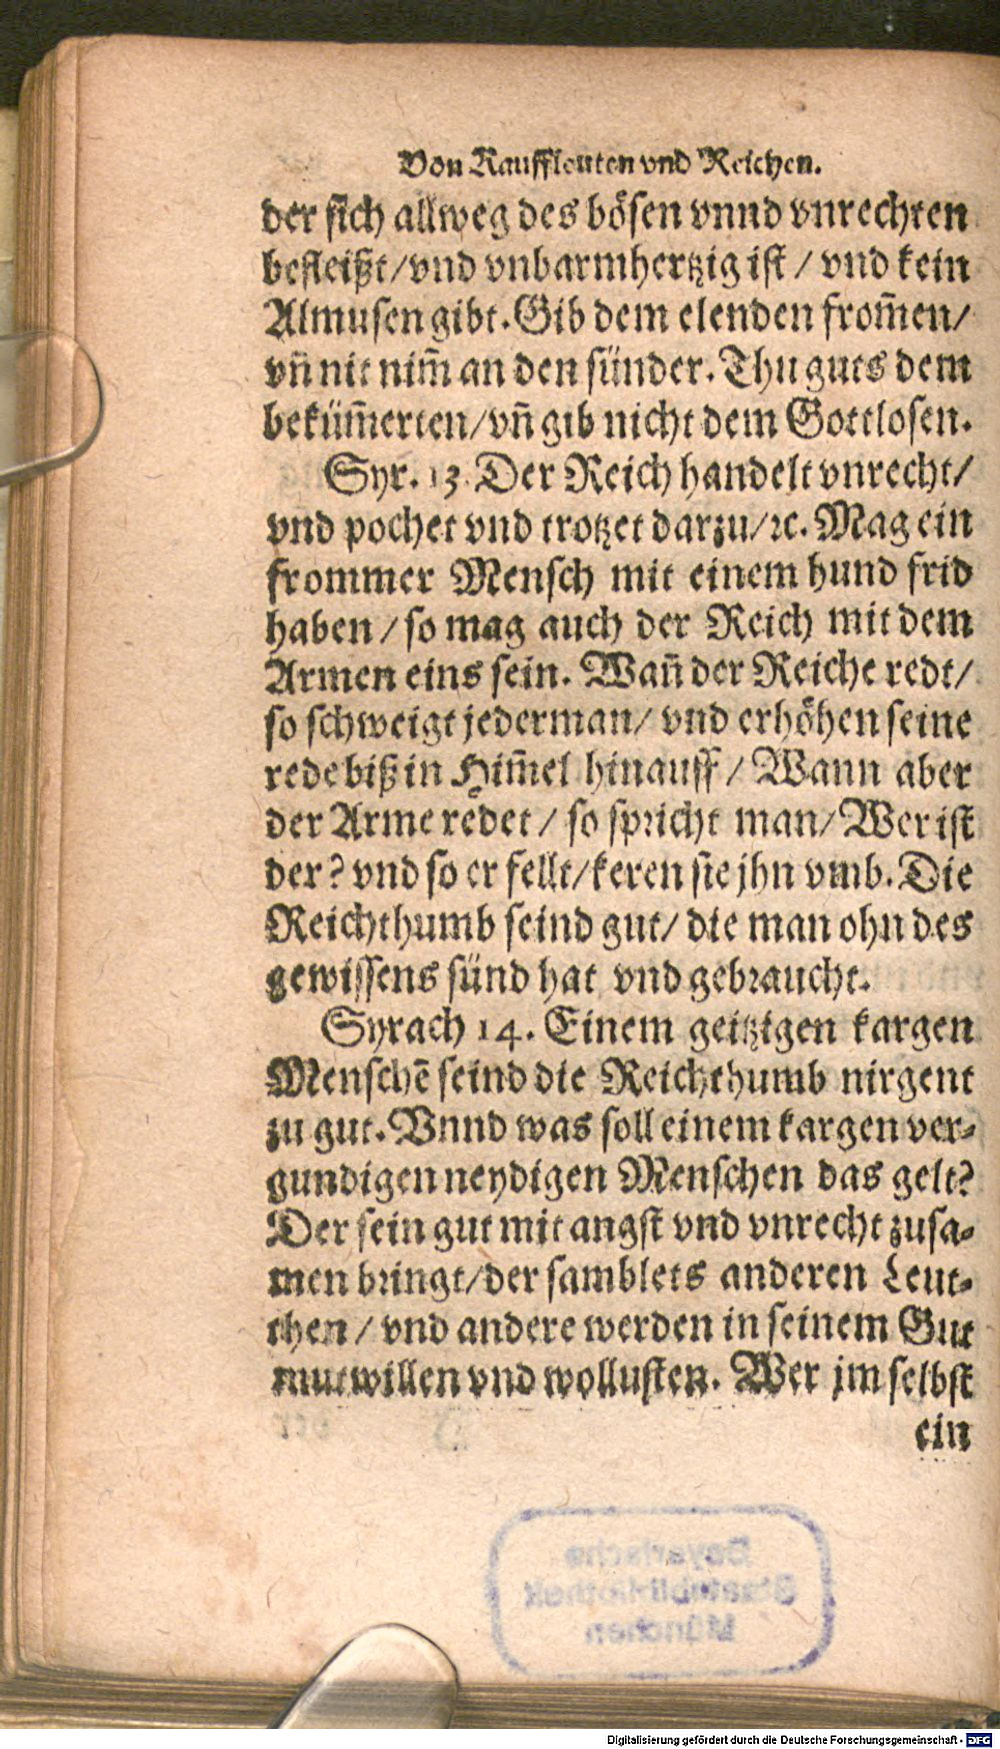 Von Kauffleuten vnd Reichen.
der sich allweg des bösen vnnd vnrechten
befleißt/vnd vnbarmhertzig ist / vnd kein
Almusen gibt. Gib dem elenden from̃en/
vñ nit nim̃ an den sünder. Thu guts dem
beküm̃erten/vñ gib nicht dem Gottlosen.
Syr. 13. Der Reich handelt vnrecht/
vnd pochet vnd trotzet darzu/ꝛc. Mag ein
frommer Mensch mit einem hund frid
haben / so mag auch der Reich mit dem
Armen eins sein. Wañ der Reiche redt/
so schweigt jederman/ vnd erhöhen seine
rede biß in Him̃el hinauff / Wann aber
der Arme redet / so spricht man/ Wer ist
der? vnd so er fellt/keren sie jhn vmb. Die
Reichthumb seind gut/ die man ohn des
gewissens sünd hat vnd gebraucht.
Syrach 14. Einem geitzigen kargen
Menschẽ seind die Reichthumb nirgent
zu gut. Vnnd was soll einem kargen ver-
gundigen neydigen Menschen das gelt?
Der sein gut mit angst vnd vnrecht zusa-
men bringt/der samblets anderen Leut-
then / vnd andere werden in seinem Gut
mutwillen vnd wollusten. Wer jm selbst
ein
Bayerische
Staatsbibliothek
München
Digitalisierung gefördert durch die Deutsche Forschungsgemeinschaft - DFG